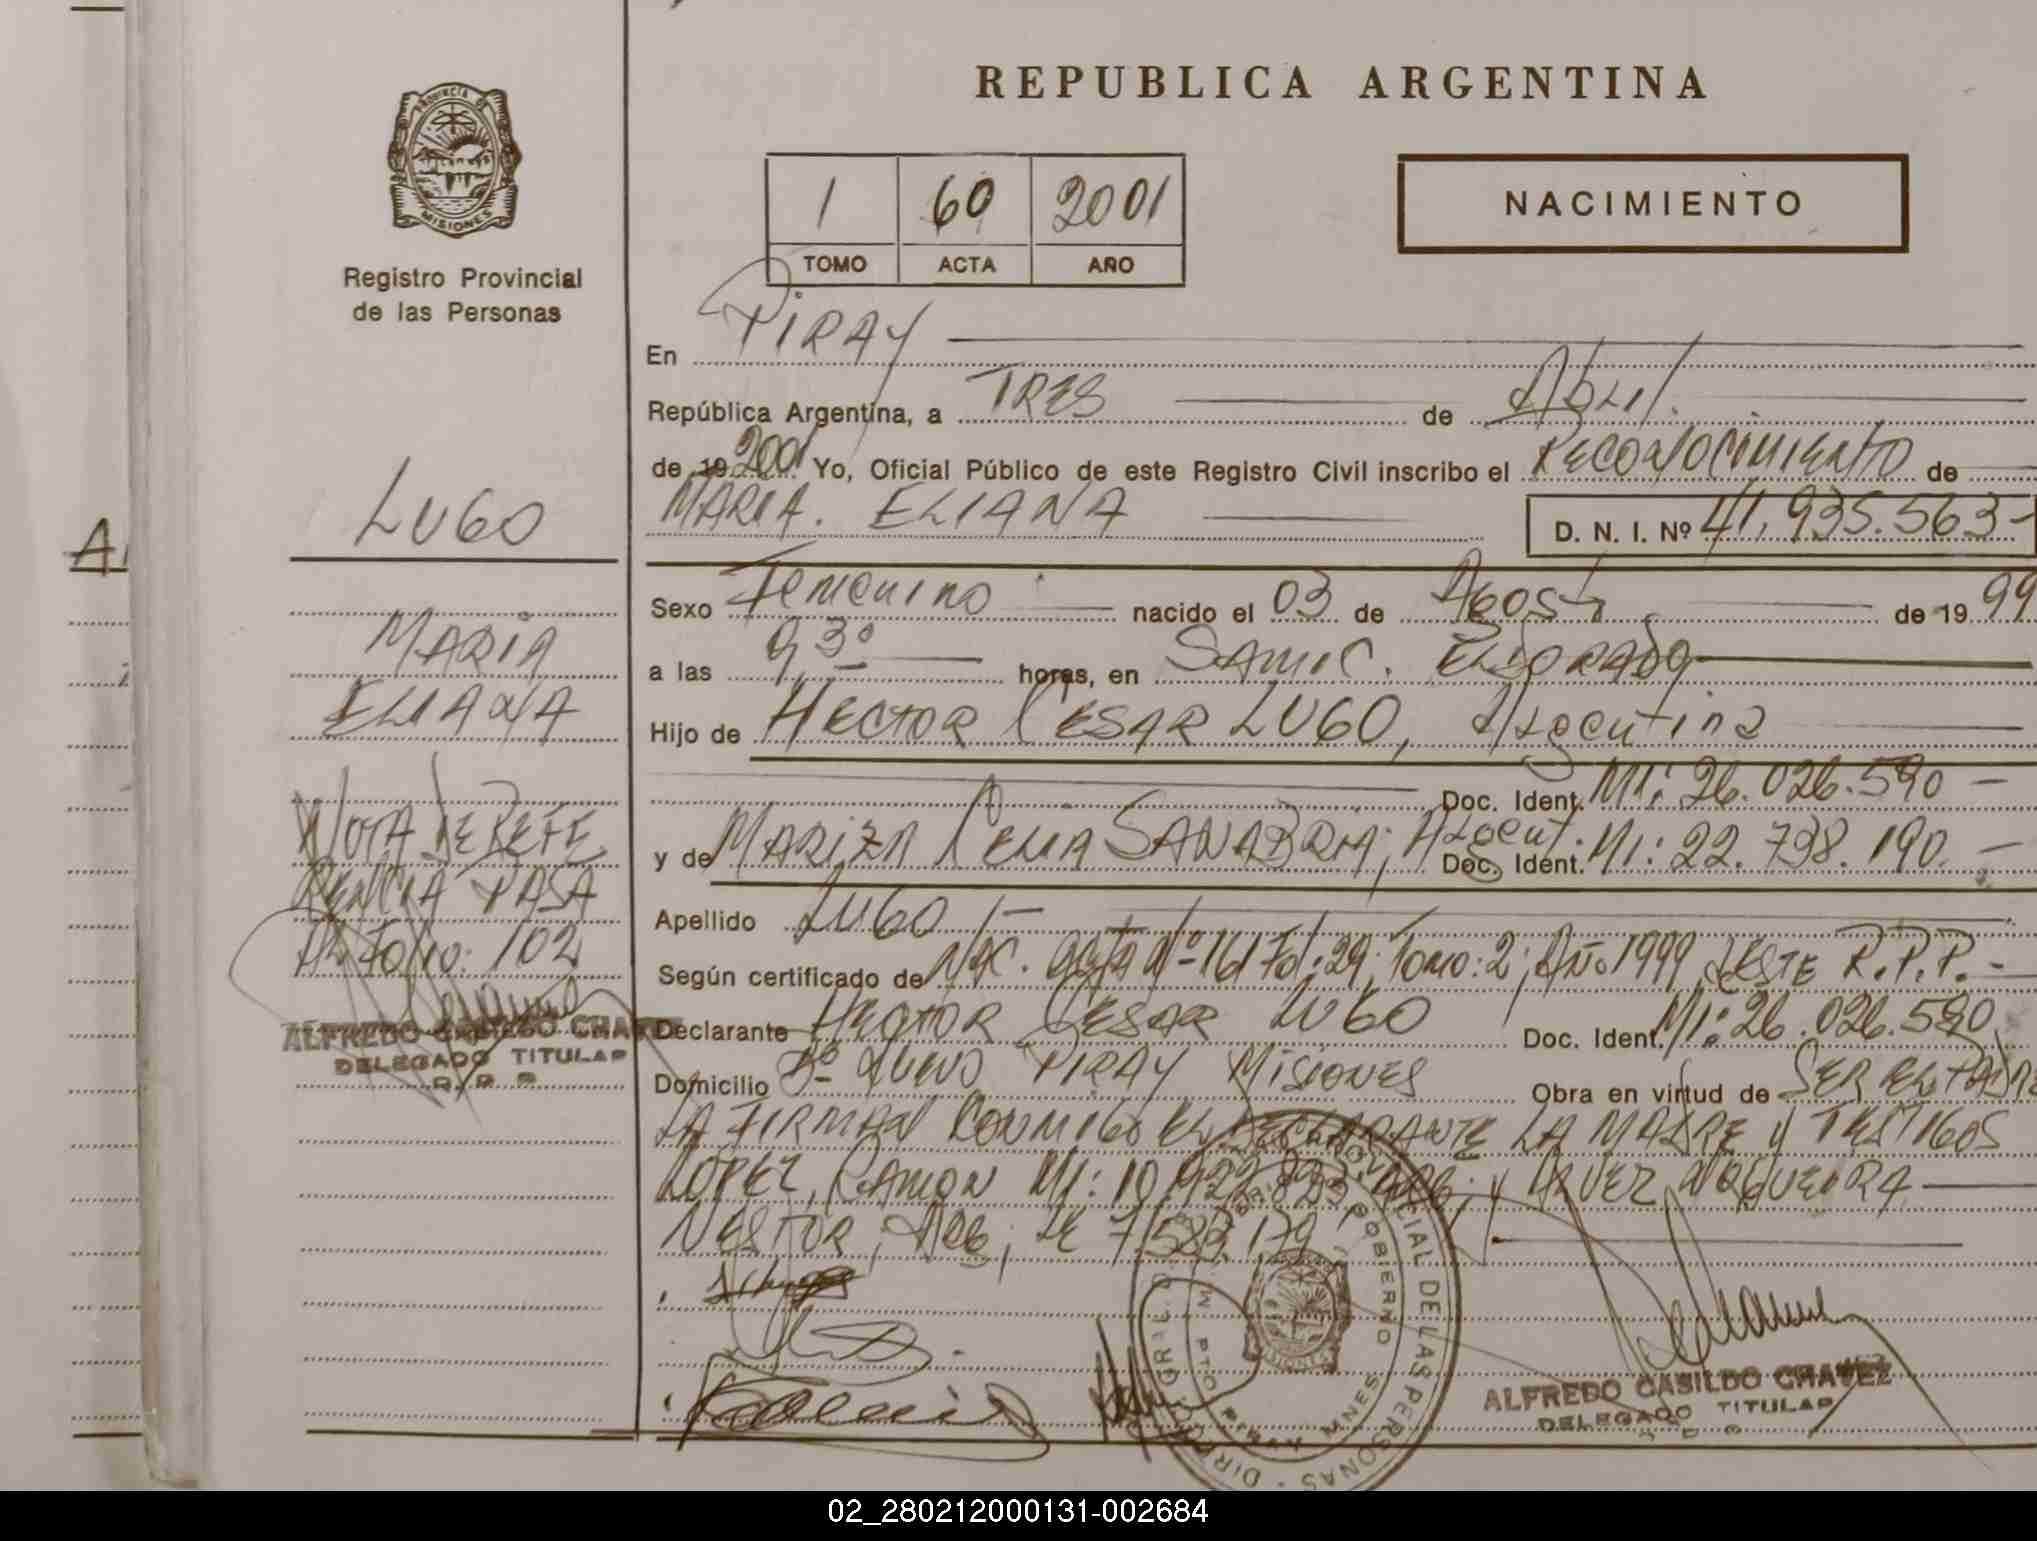 REPUBLICA ARGENTINA
PROVINCIA DE
MISIONES
Registro Provincial
de las Personas
1 60 2001
TOMO ACTA AÑO
NACIMIENTO
En PIRAY
República Argentina, a TRES de Abril.
de 19 2001 Yo, Oficial Público de este Registro Civil inscribo el RECONOCIMIENTO de
MARIA. ELIANA D. N. I. Nº 41.935.563-
Sexo Femenino nacido el 03 de Agosto de 19 99
a las 9,3º horas, en SAMIC. ELDORADO
Hijo de HECTOR CESAR LUGO, Argentina
Doc. Ident. MI: 26.026.590 -
y de MARIZA CELIA SANABRIA; Argent. Doc. Ident. MI: 22.798.190. -
Apellido LUGO /-
Según certificado de NAC. acta Nº 161 Fol: 29; Tomo: 2; Año 1999 DESTE R.P.P. -
Declarante HECTOR CESAR LUGO Doc. Ident. MI: 26.026.590
Domicilio Bº NUEVO PIRAY MISIONES Obra en virtud de SER EL PADRE
LA FIRMAN CONMIGO EL DECLARANTE LA MADRE Y TESTIGOS
LOPEZ, RAMON MI: 10.922.823 ARG; Y ALVEZ NOGUEIRA
NESTOR, ARG; LE 7.583.179
LUGO
MARIA
ELIANA
NOTA DE REFE
RENCIA PASA
AL Folio: 102
ALFREDO CASILDO CHAVEZ
DELEGADO TITULAR
R. P. P.
ALFREDO CASILDO CHAVEZ
DELEGADO TITULAR
02_280212000131-002684